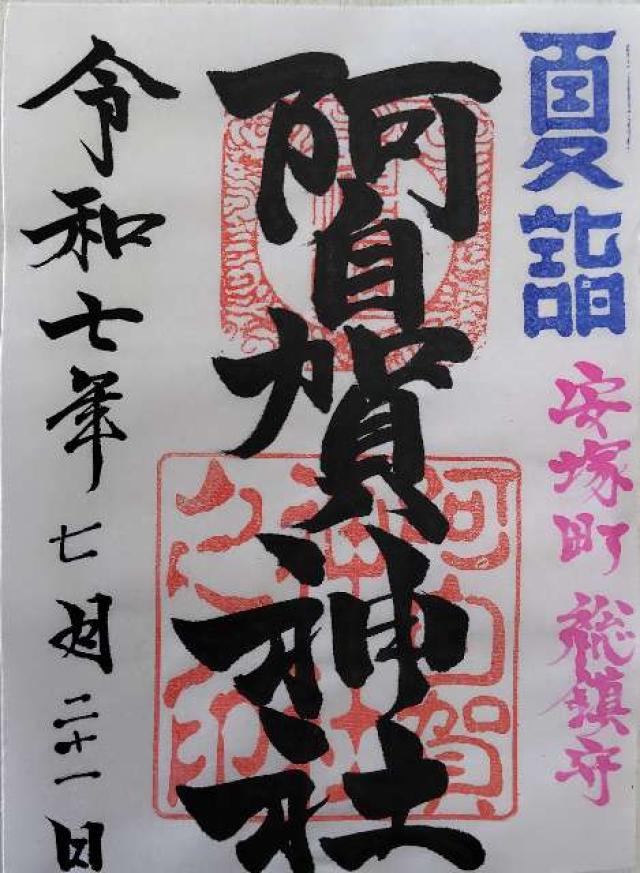 夏詣
安塚町 総鎮守
阿自賀神社
阿自賀
神社
之印
令和七年七月二十一日